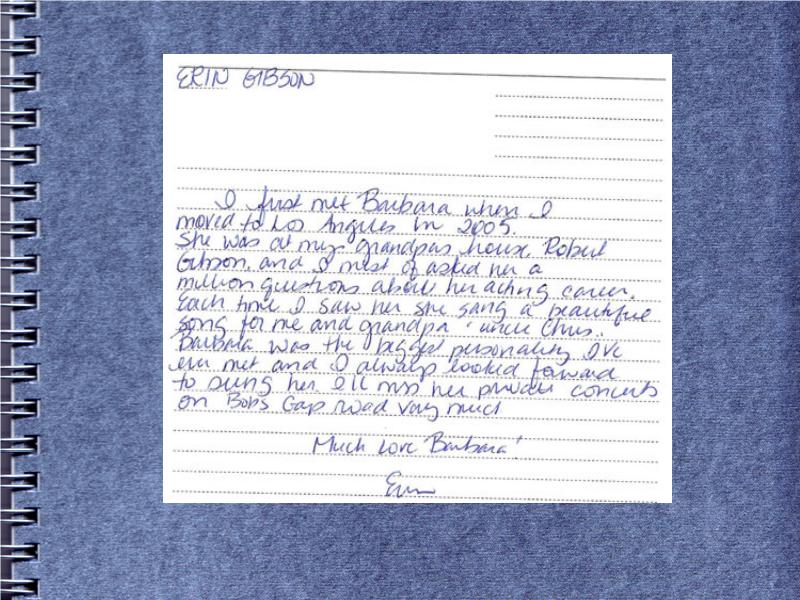 ERIN GIBSON
I first met Barbara when I
moved to Los Angeles in 2005.
She was at my grandpas house, Robert
Gibson, and I must of asked her a
million questions about her acting career.
Each time I saw her she sang a beautiful
song for me and grandpa & uncle Chris.
Barbara was the biggest personality I've
ever met and I always looked forward
to seeing her. I'll miss her private concerts
on Bobs Gap road very much
Much Love Barbara!
Erin